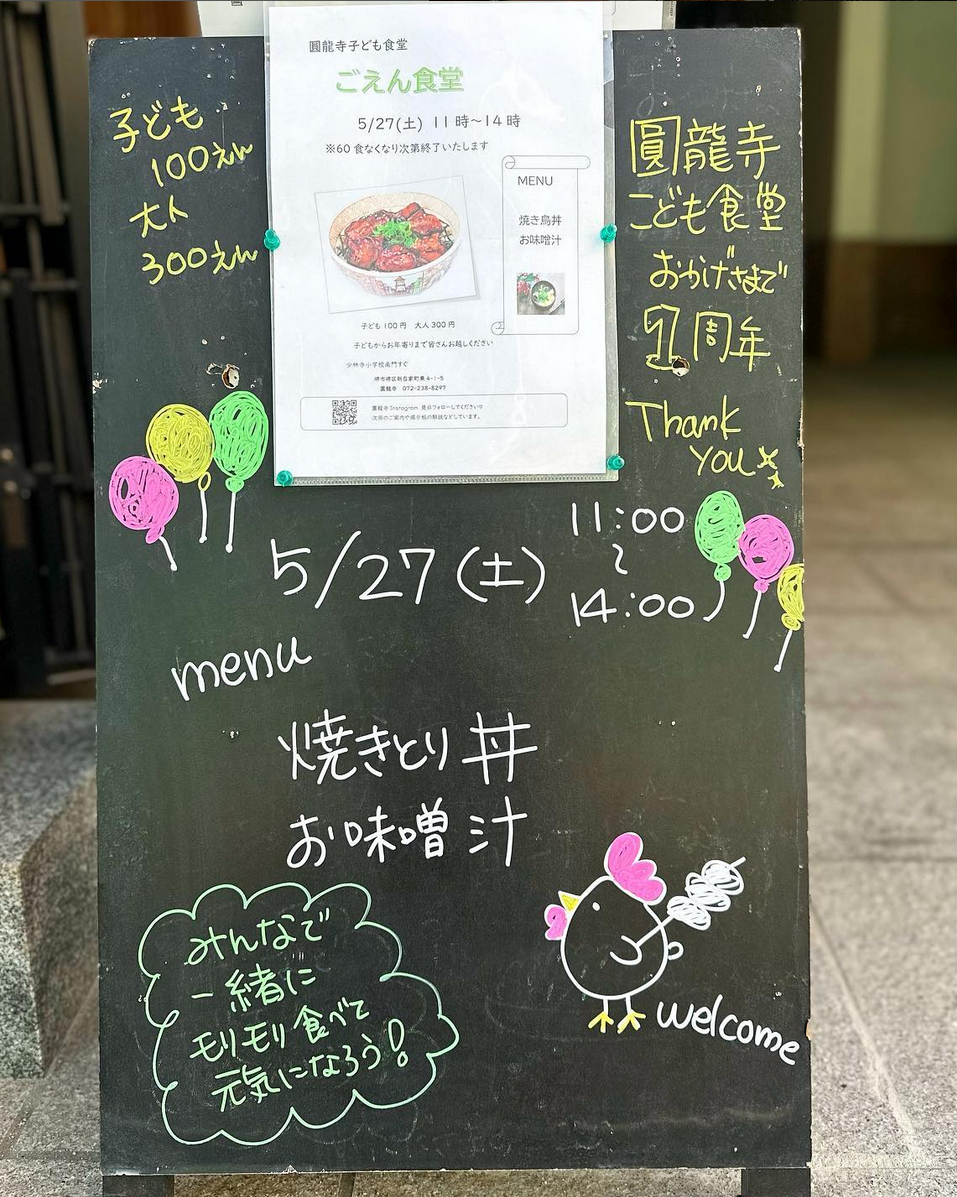 圓龍寺子ども食堂
ごえん食堂
5/27(土) 11時～14時
※60食なくなり次第終了いたします
MENU
焼き鳥丼
お味噌汁
子ども100円 大人300円
子どもからお年寄りまで皆さんお越しください
少林寺小学校南門すぐ
堺市堺区新在家町東4-1-5
圓龍寺 072-238-8297
圓龍寺Instagram 是非フォローしてください!!
次回のご案内や掲示板の解説などしています。
子ども
100えん
大人
300えん
圓龍寺
こども食堂
おかげさまで
1周年
Thank
you
5/27(土)
11:00
～
14:00
menu
焼きとり丼
お味噌汁
みんなで
一緒に
モリモリ食べて
元気になろう!
welcome